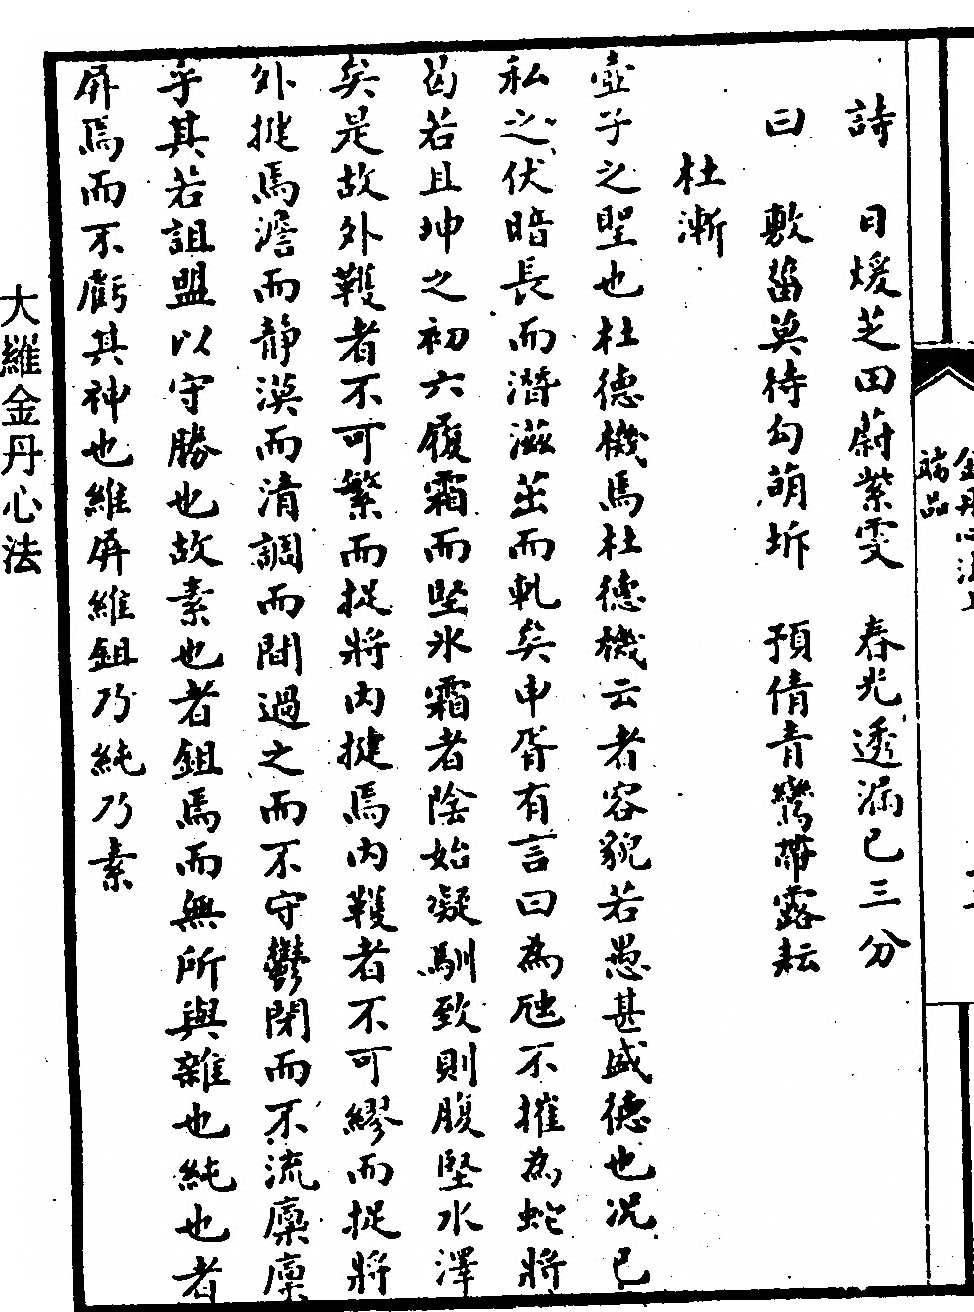 金丹心法上
端品
詩　日煖芝田蔚紫雯　春光透漏已三分
曰　敷菑莫待勾萌坼　預倩青鸞帶露耘
杜漸
壺子之聖也杜德機焉杜德機云者容貌若愚甚盛德也況已
私之伏暗長而潛滋茁而軋矣申胥有言曰為虺不摧為蛇將
曷若且坤之初六履霜而堅氷霜者陰始凝馴致則腹堅水澤
矣是故外韄者不可繁而捉將內揵焉內韄者不可繆而捉將
外揵焉澹而靜漠而清調而閒過之而不守鬱閉而不流廩廩
乎其若詛盟以守勝也故素也者鉏焉而無所與雜也純也者
屏焉而不虧其神也維屏維鉏乃純乃素
大羅金丹心法